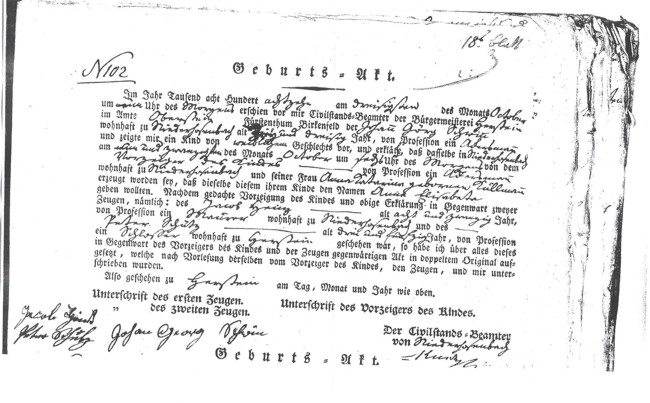 18t Blatt
N102
Geburts-Akt.
Im Jahr Tausend acht Hundert achtzehn am dreisigsten des Monats October
um neun Uhr des Morgens erschien vor mir Civilstands-Beamter der Bürgermeisterei Herrstein
im Amte Oberstein Fürstenthum Birkenfeld der Johan Georg Schön
wohnhaft zu Niederhosenbach alt und dreisig Jahr, von Profession ein Ackermann
und zeigte mir ein Kind von weiblichen Geschlechts vor, und erklärte, daß dasselbe in Niederhosenbach
am neun und zwanzigsten des Monats October um sechs Uhr des Morgens von dem
Vorzeiger des Kindes von Profession ein Ackermann
wohnhaft zu Niederhosenbach und seiner Frau Anna Catarina geborenen Küllmann
erzeugt worden sey, daß dieselbe diesem ihrem Kinde den Namen Anna Elisabeta
geben wollten. Nachdem gedachte Vorzeigung des Kindes und obige Erklärung in Gegenwart zweyer
Zeugen, nämlich: des Jacob Heinz alt acht und zwanzig Jahr,
von Profession ein Maurer wohnhaft zu Niederhosenbach und des
Peter Schütz alt drei und fünfzig Jahr, von Profession
ein Schlosser wohnhaft zu Herrstein geschehen war, so habe ich über alles dieses
in Gegenwart des Vorzeigers des Kindes und der Zeugen gegenwärtigen Akt in doppeltem Original auf-
gesetzt, welche nach Vorlesung derselben vom Vorzeiger des Kindes, den Zeugen, und mir unter-
schrieben wurden.
Also geschehen zu Herrstein am Tag, Monat und Jahr wie oben.
Unterschrift des ersten Zeugen. Unterschrift des Vorzeigers des Kindes.
" des zweiten Zeugen.
Jacob Heinz
Peter Schütz Johan Georg Schön
Der Civilstands-Beamter
von Niederhosenbach
Geburts-Akt.